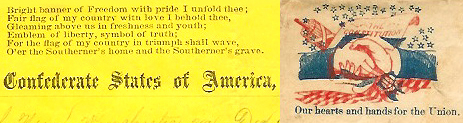 Bright banner of Freedom with pride I unfold thee;
Fair flag of my country with love I behold thee,
Gleaming above us in freshness and youth;
Emblem of liberty, symbol of truth;
For the flag of my country in triumph shall wave,
O'er the Southerner's home and the Southerner's grave.
Confederate States of America,
CONSTITUTION
Our hearts and hands for the Union.